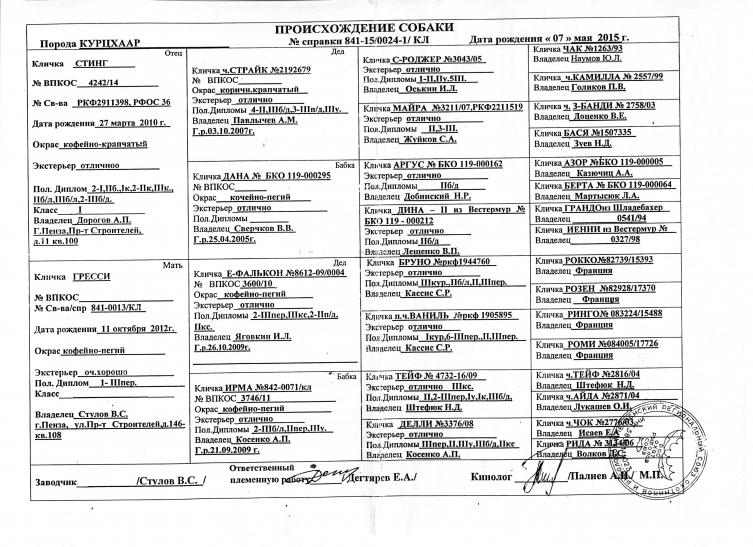 ПРОИСХОЖДЕНИЕ СОБАКИ
Порода КУРЦХААР
№ справки 841-15/0024-1/ КЛ
Дата рождения « 07 » мая 2015 г.
Отец
Кличка СТИНГ
№ ВПКОС 4242/14
№ Св-ва РКФ2911398, РФОС 36
Дата рождения 27 марта 2010 г.
Окрас кофейно-крапчатый
Экстерьер отличноо
Пол. Диплом 2-I,IIб.,Iк,2-IIк,IIIк.,
IIб/л,IIIб/л,2-IIIб/д.
Класс I
Владелец Дорогов А.П.
Г.Пенза,Пр-т Строителей,
д.11 кв.100
Мать
Кличка ГРЕССИ
№ ВПКОС
№ Св-ва/спр 841-0013/КЛ
Дата рождения 11 октября 2012г.
Окрас кофейно-пегий
Экстерьер оч.хорошо
Пол. Диплом 1- IIпер.
Класс
Владелец Стулов В.С.
г.Пенза, ул.Пр-т Строителей,д.146-
кв.108
Дед
Кличка ч.СТРАЙК №2192679
№ ВПКОС
Окрас коричн.крапчатый
Экстерьер отлично
Пол.Дипломы 4-II,IIIб/д,3-IIIп/д,IIу.
Владелец Павлычев А.М.
Г.р.03.10.2007г.
Бабка
Кличка ДАНА № БКО 119-000295
№ ВПКОС
Окрас кочейно-пегий
Экстерьер отлично
Пол.Дипломы
Владелец Сверчков В.В.
Г.р.25.04.2005г.
Дед
Кличка Е-ФАЛЬКОН №8612-09/0004
№ ВПКОС 3600/10
Окрас кофейно-пегий
Экстерьер отлично
Пол.Дипломы 2-IIIпер,IIIкс,2-IIп/д,
IIкс.
Владелец Яговкин И.Л.
Г.р.26.10.2009г.
Бабка
Кличка ИРМА №842-0071/кл
№ ВПКОС 3746/11
Окрас кофейно-пегий
Экстерьер отлично
Пол.Дипломы 2-IIб/д,IIпер,IIIу.
Владелец Косенко А.П.
Г.р.21.09.2009 г.
Кличка С-РОДЖЕР №3043/05
Экстерьер отлично
Пол.Дипломы 1-II,IIу.5III.
Владелец Оськин И.Л.
Кличка МАЙРА №3211/07,РКФ2211519
Экстерьер отлично
Пол.Дипломы II,3-III.
Владелец Жуйков С.А.
Кличка АРГУС № БКО 119-000162
Экстерьер отлично
Пол.Дипломы IIб/д
Владелец Добинский Н.Р.
Кличка ДИНА – II из Вестермур №
БКО 119 - 000212
Экстерьер отлично
Пол.Дипломы IIб/д
Владелец Лещенко В.П.
Кличка БРУНО №ркф1944760
Экстерьер отлично
Пол.Дипломы Iкур.,IIб/л,II,IIпер.
Владелец Кассис С.Р.
Кличка п.ч.ВАНИЛЬ №ркф 1905895
Экстерьер отлично
Пол.Дипломы Iкур,6-IIIпер.,II,IIIпер.
Владелец Кассис С.Р.
Кличка ТЕЙФ № 4732-16/09
Экстерьер отлично IIIкс.
Пол.Дипломы II,2-IIпер,Iу,Iк,IIIб/д.
Владелец Штефюк Н.Д.
Кличка ДЕЛЛИ №3376/08
Экстерьер отлично
Пол.Дипломы IIIпер,II,IIу,IIIб/д,IIкс
Владелец Косенко А.П.
Кличка ЧАК №1263/93
Владелец Наумов Ю.Л.
Кличка ч.КАМИЛЛА № 2557/99
Владелец Голиков П.В.
Кличка ч. З-БАНДИ № 2758/03
Владелец Доценко В.Е.
Кличка БАСЯ №1507335
Владелец Зуев Н.Д.
Кличка АЗОР №БКО 119-000005
Владелец Казючиц А.А.
Кличка БЕРТА № БКО 119-000064
Владелец Мартысюк Л.А.
Кличка ГРАНДОиз Шладебахер
Владелец 0541/94
Кличка ИЕННИ из Вестермур №
Владелец 0327/98
Кличка РОККО№82739/15393
Владелец Франция
Кличка РОЗЕН №82928/17370
Владелец Франция
Кличка РИНГО№ 083224/15488
Владелец Франция
Кличка РОМИ №084005/17726
Владелец Франция
Кличка ч.ТЕЙП №2816/04
Владелец Штефюк Н.Д.
Кличка ч.АЙДА №2871/04
Владелец Лукашев О.И.
Кличка ч.ЧОК №2776/03,
Владелец Исаев Е.А
Кличка РИДА №
Владелец Волков Д.С.
Заводчик /Стулов В.С. /
Ответственный
племенную работу Дегтярев Е.А./
Кинолог /Палиев А.И./ М.П.